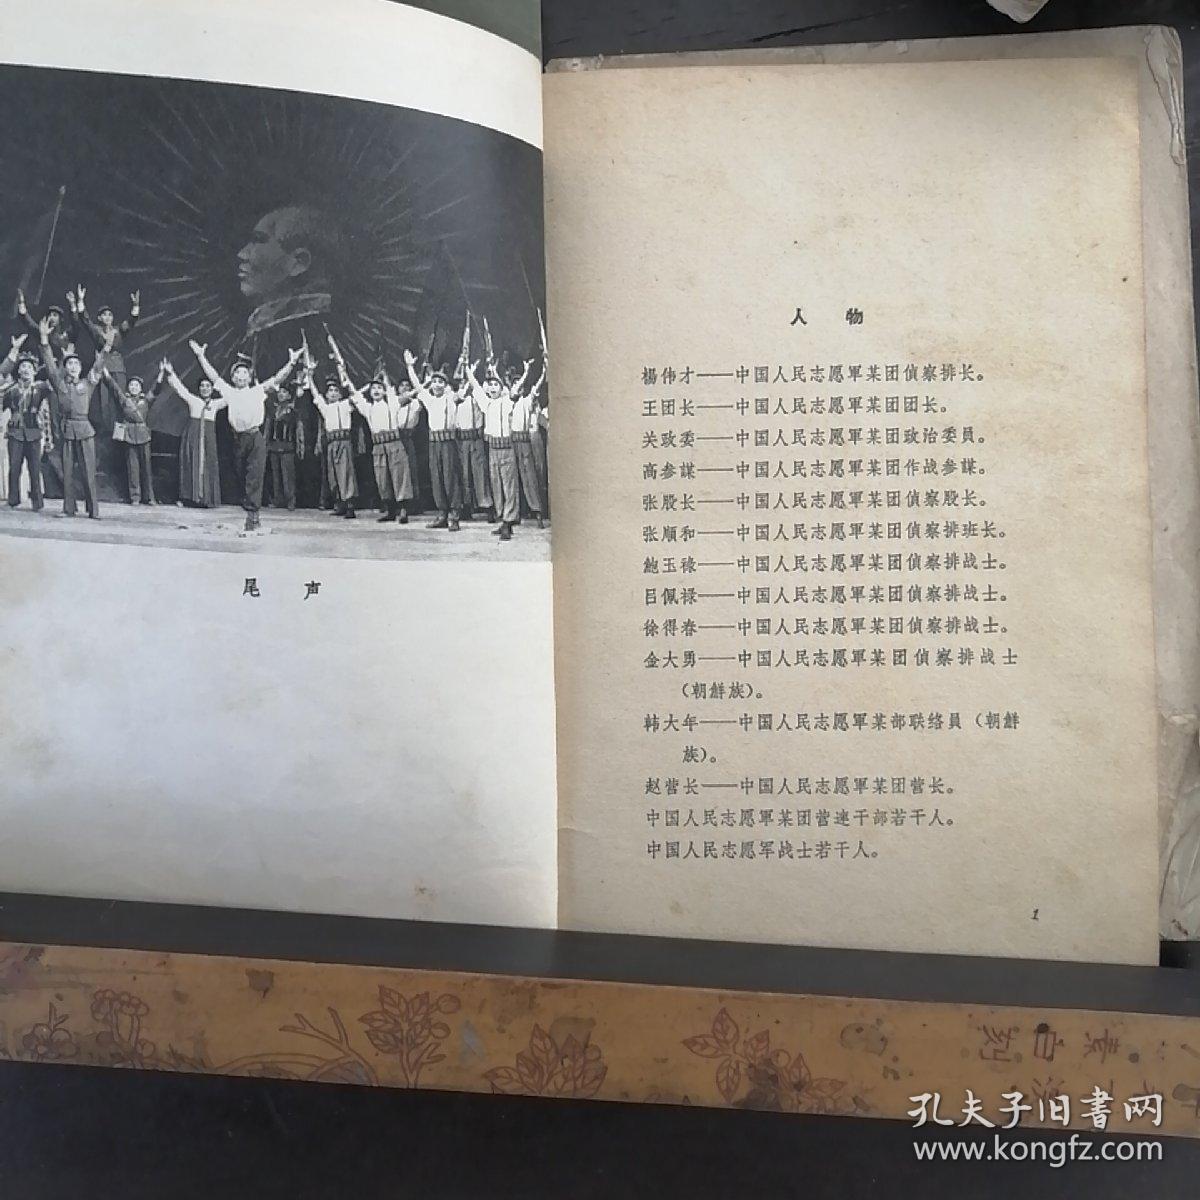 尾声
人物
楊伟才——中国人民志愿軍某团偵察排长。
王团长——中国人民志愿軍某团团长。
关政委——中国人民志愿軍某团政治委員。
高参謀——中国人民志愿軍某团作战参謀。
张股长——中国人民志愿軍某团偵察股长。
张順和——中国人民志愿軍某团偵察排班长。
鮑玉祿——中国人民志愿軍某团偵察排战士。
吕佩禄——中国人民志愿軍某团偵察排战士。
徐得春——中国人民志愿軍某团偵察排战士。
金大勇——中国人民志愿軍某团偵察排战士
(朝鮮族)。
韩大年——中国人民志愿軍某部联络員(朝鮮
族)。
赵营长——中国人民志愿軍某团营长。
中国人民志愿軍某团营連干部若干人。
中国人民志愿军战士若干人。
1
孔夫子旧書网
www.kongfz.com